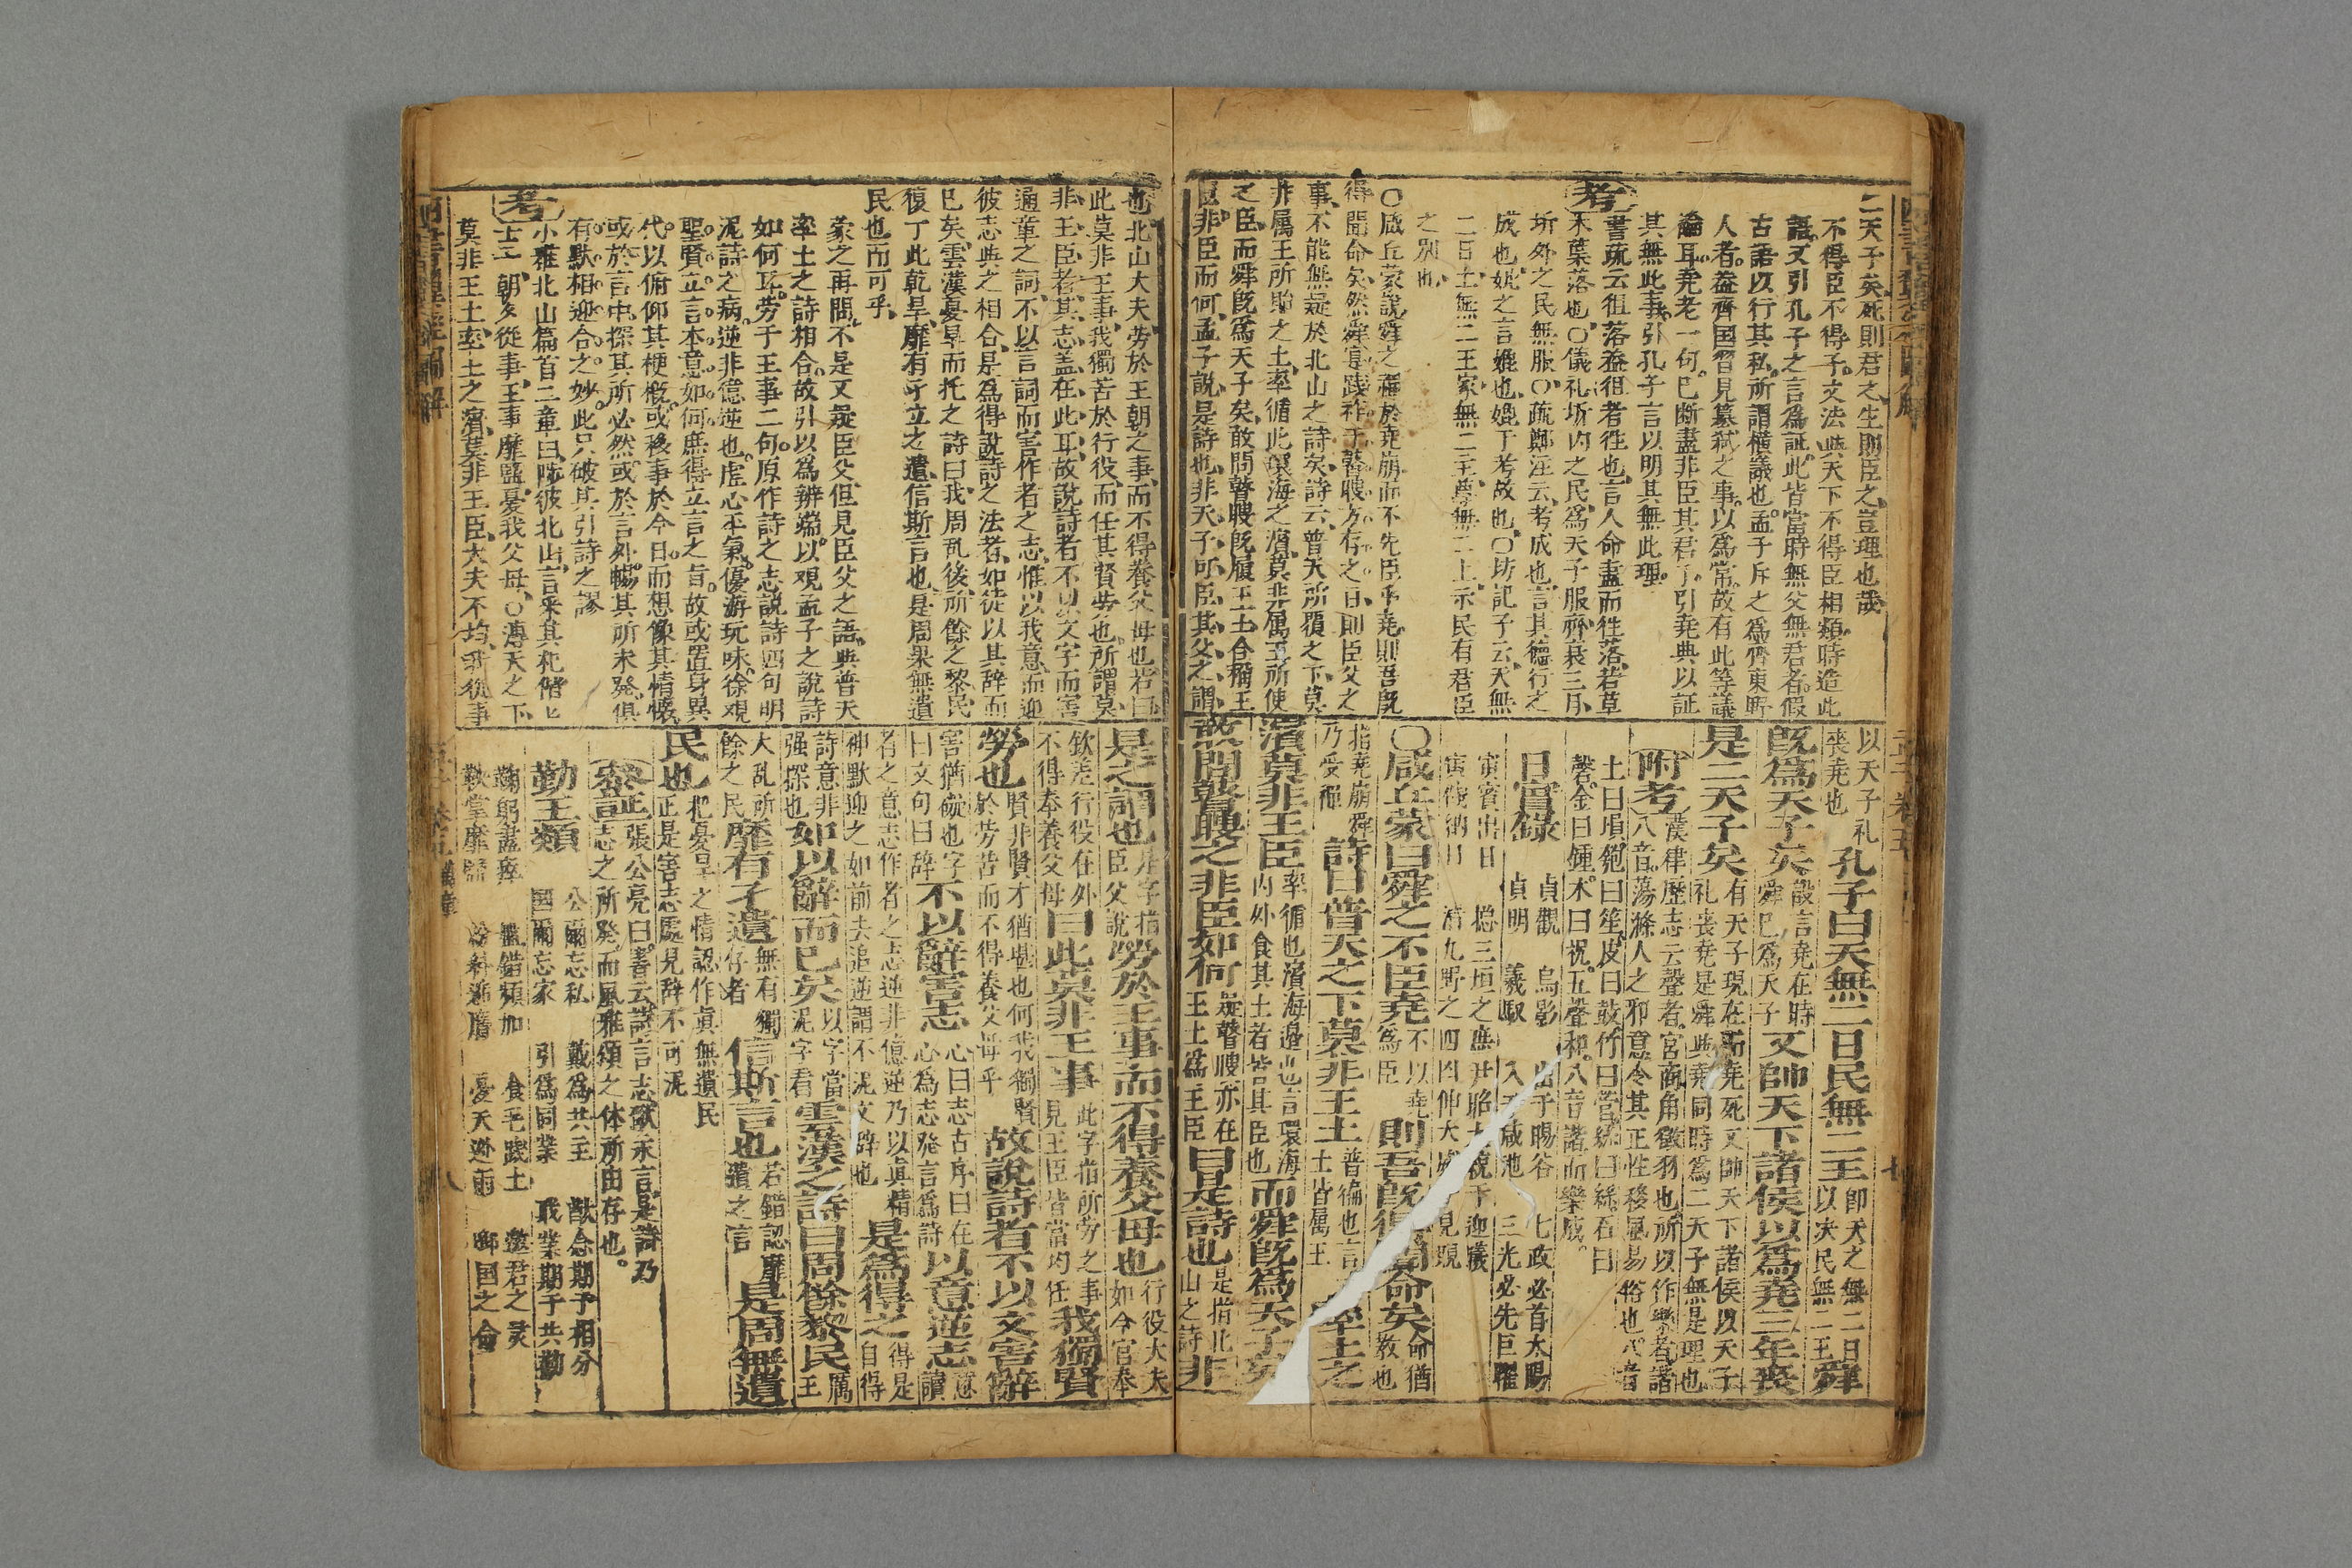 二天子矣死則君之生則臣之豈理也哉
不得臣不得子文法與天下不得臣相類時造此
語又引孔子之言爲証此皆當時無父無君者假
古語以行其私所謂橫議也孟子斥之爲齊東野
人者蓋齊国習見篡弑之事以爲常故有此等議
論耳堯老一句已斷盡非臣其君了引堯典以証
其無此事引孔子言以明其無此理
考
書疏云徂落蓋徂者徃也言人命盡而徃落若草
木葉落也〇儀礼圻内之民爲天子服齊衰三月
圻外之民無服〇疏鄭注云考成也言其德行之
成也妣之言媲也媲于考故也〇坊記子云天無
二日土無二王家無二主尊無二上示民有君臣
之別也
〇咸丘蒙說舜之禪於堯崩而不先臣乎堯則吾既
得聞命矣然舜寔践祚于瞽瞍方存之日則臣父之
事不能無疑於北山之詩矣詩云普天所覆之下莫
非属王所貽之土率循此環海之濱莫非属王所使
之臣而舜既爲天子矣敢問瞽瞍既履王土合稱王
臣非臣而何孟子說是詩也非天子可臣其父之謂
以天子礼
喪堯也
孔子曰天無二日民無二王
即天之無二日
以決民無二王
舜
既爲天子矣
設言堯在時
舜已爲天子
又帥天下諸侯以爲堯三年喪
是二天子矣
有天子現在而堯死又帥天下諸侯以天子
礼喪堯是舜與堯同時爲二天子無是理也
附考
漢律歷志云聲者宮商角徵羽也所以作樂者諧
八音蕩滌人之邪意令其正性移風易俗也八音
土曰塤匏曰笙皮曰鼓竹曰管絲曰絃石曰
磬金曰鍾木曰祝五聲和八音諧而樂成
日實錄
貞觀
貞明
烏影
羲馭
出于暘谷
入于咸池
七政必首太陽
三光必先巨耀
寅賓出日
寅餞納日
〇咸丘蒙曰舜之不臣堯
不以堯
爲臣
則吾既得聞命矣
命猶
教也
指堯崩舜
乃受禪
詩曰普天之下莫非王土
普徧也言
土皆属王
率土之
濱莫非王臣
率循也濱海邊也言環海
内外食其土者皆其臣也
而舜既爲天子矣
敢問瞽瞍之非臣如何
疑瞽瞍亦在
王土爲王臣
曰是詩也
是指北
山之詩
非
也北山大夫劳於王朝之事而不得養父母也若曰
此莫非王事我獨苦於行役而任其賢劳也所謂莫
非王臣者其志盖在此耳故說詩者不以文字而害
通章之詞不以言詞而害作者之志惟以我意而迎
彼志與之相合是爲得說詩之法者如徒以其辞而
已矣雲漢憂旱而托之詩曰我周乱後所餘之黎民
復丁此乾旱靡有孑立之遺信斯言也是周果無遺
民也而可乎
蒙之再問不是又疑臣父但見臣父之語與普天
率土之詩相合故引以爲辨端以觀孟子之說詩
如何耳劳于王事二句原作詩之志說詩四句明
泥詩之病逆非億逆也虛心平氣優游玩味徐观
聖賢立言本意如何庶得立言之旨故或置身異
代以俯仰其梗概或移事於今日而想像其情懷
或於言中探其所必然或於言外暢其所未發俱
有默相迎合之妙此只破其引詩之謬
考
小雅北山篇首二章曰陟彼北山言采其杞偕
士子朝夕從事王事靡盬憂我父母〇溥天之下
莫非王土率土之濱莫非王臣大夫不均我從事
是之謂也
是字指
臣父說
劳於王事而不得養父母也
行役大夫
如今官奉
欽差行役在外
不得奉養父母
曰此莫非王事
此字指所劳之事
見王臣皆當均任
我獨賢
勞也
賢非賢才猶勚也何我獨賢
於劳苦而不得養父母乎
故說詩者不以文害辭
害猶礙也字
曰文句曰辞
不以辭害志
心曰志古序曰在
心為志発言爲詩
以意逆志
意
讀
者之意志作者之志逆非億逆乃以真精
神默迎之如前去追逆謂不泥文辞也
是爲得之
得是
自得
詩意非
强探也
如以辭而已矣
以字當
泥字看
雲漢之詩曰周餘黎民
厲
王
大乱所
餘之民
靡有孑遺
無有獨
存者
信斯言也
若錯認靡
遺之言
是周無遺
民也
杞憂旱之情認作真無遺民
正是害志處見辞不可泥
叅証
張公亮曰書云詩言志歌永言是詩乃
志之所発而風雅頌之体所由存也
勤王類
公爾忘私
国爾忘家
戴爲共主
引爲同業
猷念期于相分
我業期于共勤
鞠躬盡瘁
鞅掌靡盬
盤錯頻加
食毛踐土
憂天逊雨